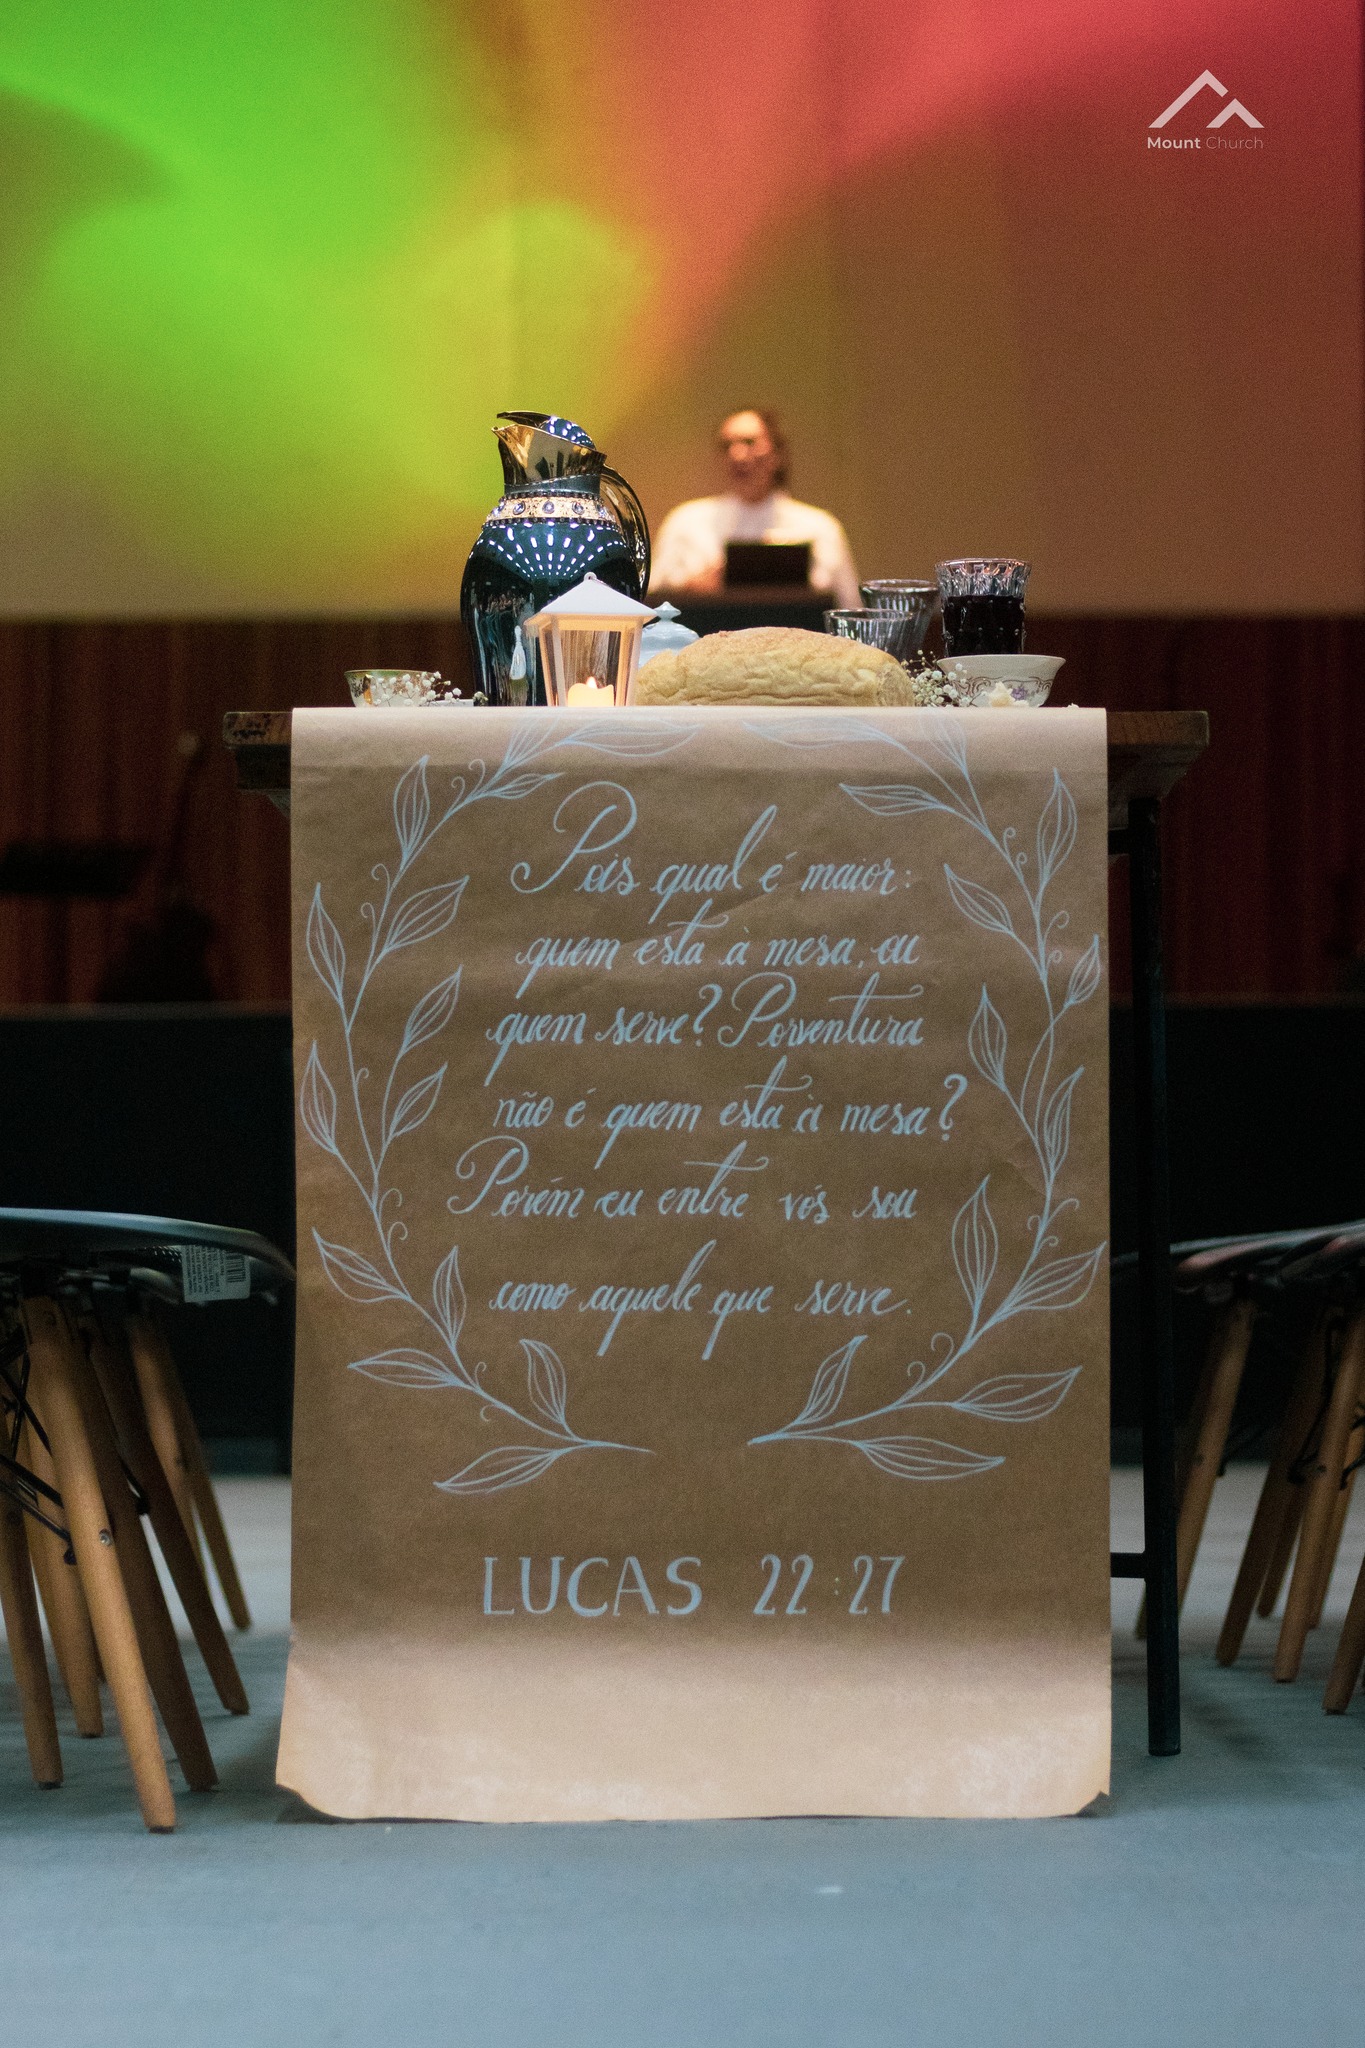 Mount Church
Pois qual é maior:
quem esta à mesa, ou
quem serve? Porventura
não é quem esta à mesa?
Porém eu entre vós sou
como aquele que serve.
LUCAS 22:27